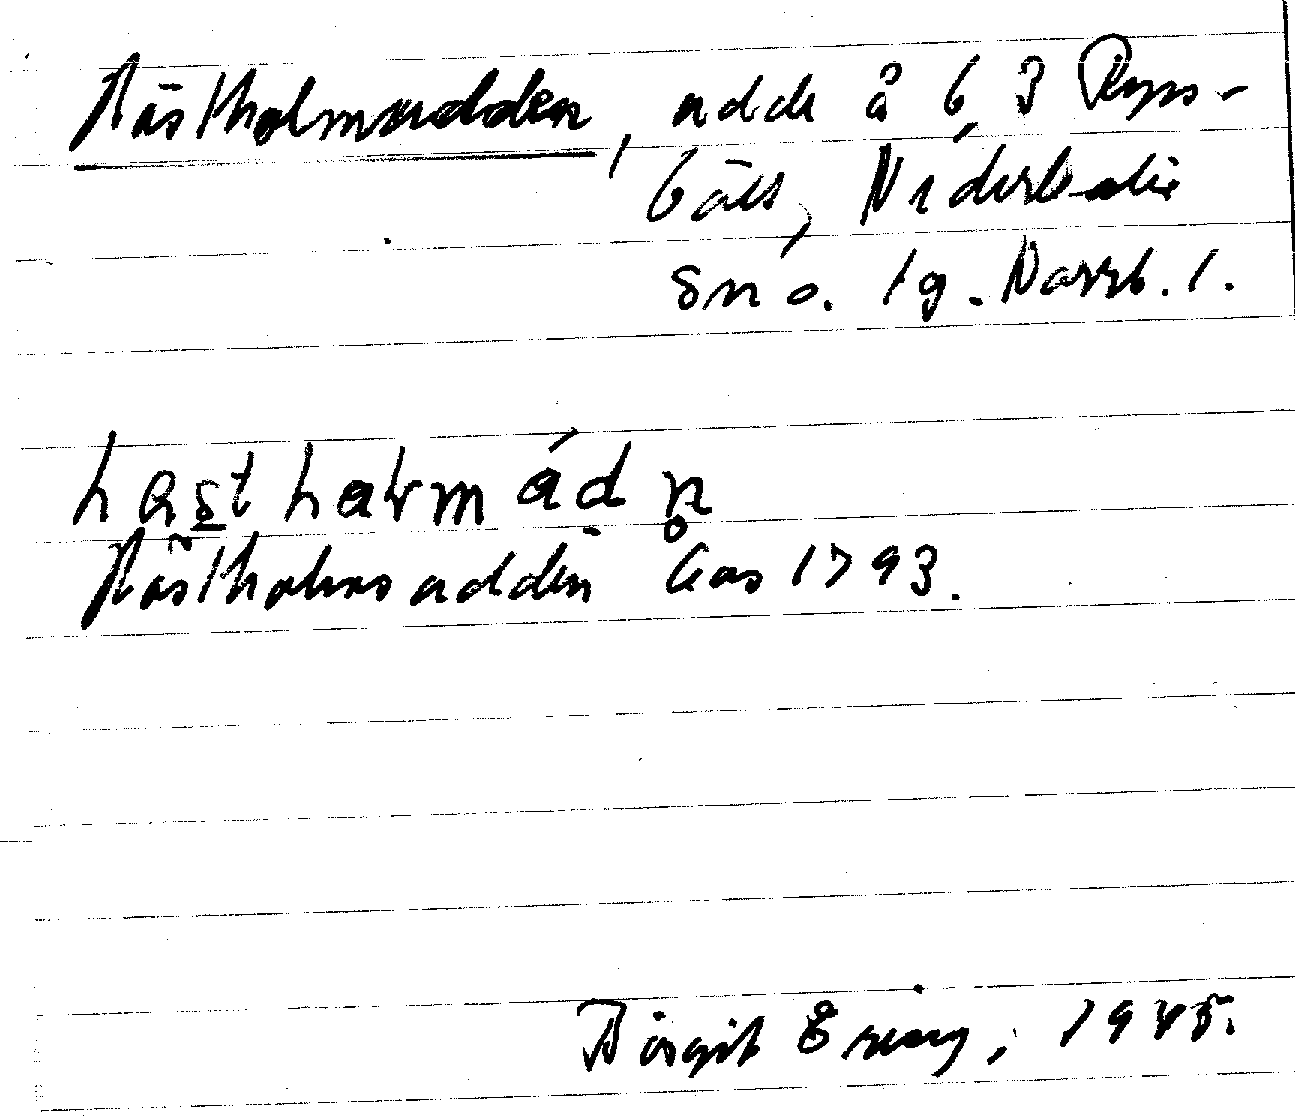 Hästholmsudden, udde å 6,3 Ryss-
bält, Nederkalix
sn o. tg. Norrb. l.
hastholmádn̥
Hästholms udden Gas 1793.
Birgit Ering, 1945.